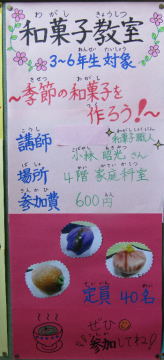 わがし きょうしつ
和菓子教室
ねんせい たいしょう
3~6年生対象
きせつ わがし
～季節の和菓子を
つく
作ろう!～
こうし
講師
わがししょくにん
和菓子職人
こばやし
小林 昭光 さん
ばしょ
場所
かい かていかしつ
4階 家庭科室
さんかひ
参加費
えん
600円
ていいん めい
定員 40名
ぜひ
さんか
参加してね♪